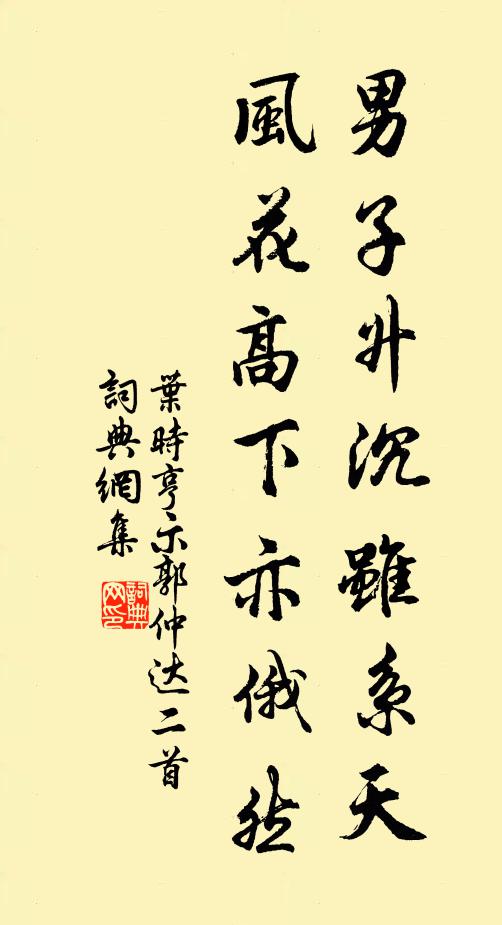 男子升沉雖系天
風花高下亦俄然
葉時亨示郭仲达二首
詞典網集
詞典網印